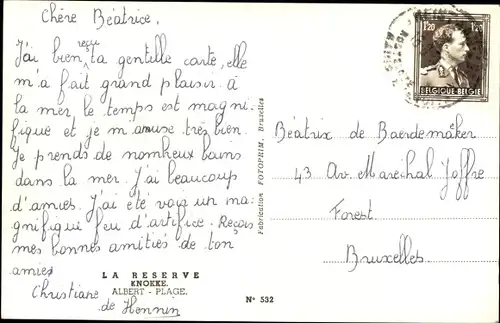 Chère Béatrice,
J'ai bien reçu ta gentille carte, elle
m'a fait grand plaisir. à
la mer le temps est magni-
fique et je m'amuse très bien.
Je prends de nombeux bains
dans la mer. J'ai beaucoup
d'amies. J'ai été voir un ma-
gnifiqui feu d'artifice. Reçois
mes bonnes amitiés de ton
amies
Christiane
de Hennin
LA RESERVE
KNOKKE.
ALBERT - PLAGE.
Nº 532
Fabrication FOTOPRIM, Bruxelles
1F20 1F20
BELGIQUE-BELGIE
Béatrix de Baerdemaêker
43 Av. Maréchal Joffre
Forest
Bruxelles